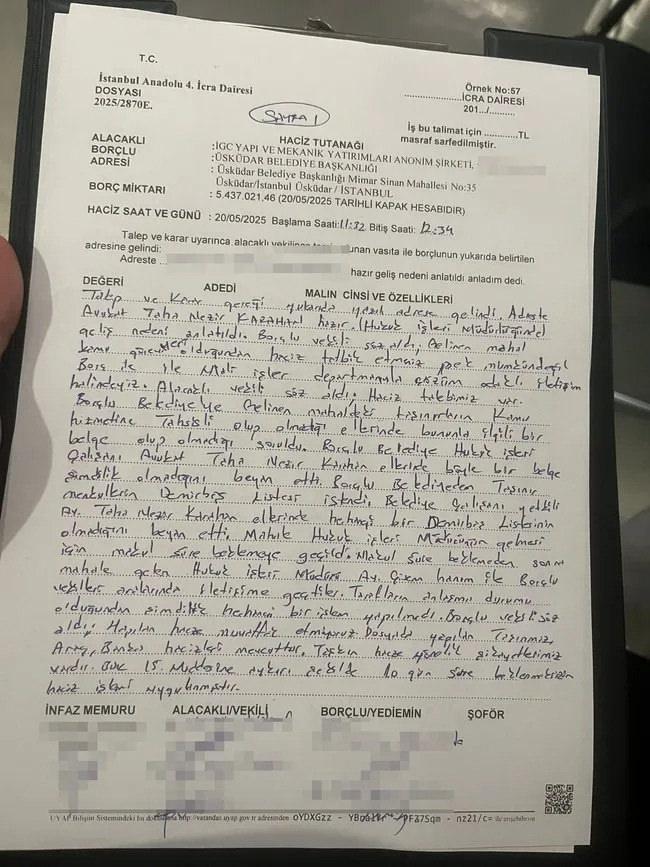 T.C.
İstanbul Anadolu 4. İcra Dairesi
DOSYASI
2025/2870E.
Örnek No:57
..................İCRA DAİRESİ
201.../..........
SAYFA 1
İş bu talimat için ............TL
masraf sarfedilmiştir.
HACİZ TUTANAĞI
ALACAKLI :İGC YAPI VE MEKANİK YATIRIMLARI ANONİM ŞİRKETİ,
BORÇLU :ÜSKÜDAR BELEDİYE BAŞKANLIĞI
ADRESİ : Üsküdar Belediye Başkanlığı Mimar Sinan Mahallesi No:35
Üsküdar/İstanbul Üsküdar / İSTANBUL
BORÇ MİKTARI : 5.437.021,46 (20/05/2025 TARİHLİ KAPAK HESABIDIR)
HACİZ SAAT VE GÜNÜ : 20/05/2025 Başlama Saati:11:32 Bitiş Saati: 12:34
Talep ve karar uyarınca alacaklı vekilinin unan vasıta ile borçlunun yukarıda belirtilen
adresine gelindi:
Adreste hazır geliş nedeni anlatıldı anladım dedi.
DEĞERİ ADEDİ MALIN CİNSİ VE ÖZELLİKLERİ
Talep ve Karar gereği yukarıda yazılı adrese gelindi. Adreste
Avukat Taha Nezir KARAHAN hazır. (Hukuk işleri Müdürlüğünde)
geliş nedeni anlatıldı. Borçlu vekili söz aldı, Gelinen mahal
kamu görev yeri olduğundan haciz tatbik etmeniz pek mümkün değil
Borç ile ile Mali işler departmanıyla çözüm odaklı iletişim
halindeyiz. Alacaklı vekili söz aldı. Haciz talebimiz var.
Borçlu Belediyeye Gelinen mahaldeki taşınırların Kamu
hizmetine Tahsisli olup olmadığı ellerinde bununla ilgili bir
belge olup olmadığı soruldu. Borçlu Belediye Hukuk işleri
Çalışanı Avukat Taha Nezir Karahan ellerinde böyle bir belge
şimdilik olmadığını beyan etti. Borçlu Belediyeden Taşınır
menkullerin Demirbaş Listesi istendi. Belediye Çalışanı yetkili
Av. Taha Nezir Karahan ellerinde herhangi bir Demirbaş Listesinin
olmadığını beyan etti. Mahale Hukuk işleri Müdürünün gelmesi
için makul süre beklemeye geçildi. Makul Süre beklemeden sonra
mahale gelen Hukuk işleri Müdürü Av. Çiğdem hanım ile Borçlu
vekilleri aralarında iletişime geçtiler. Tarafların anlaşma durumu
olduğundan şimdilik herhangi bir işlem yapılmadı. Borçlu vekili söz
aldı. Yapılan hacze muvafakat etmiyoruz. Dosyada yapılan Taşınmaz,
Araç, Banka hacizleri mevcuttur. Taşkın hacze yönelik şikayetlerimiz
vardır. 15. Maddesine aykırı şekilde 10 gün süre beklenmeksizin
haciz işlemi uygulanmıştır.
İNFAZ MEMURU ALACAKLI/VEKİLİ BORÇLU/YEDİEMİN ŞOFÖR
UYAP Bilişim Sistemindeki bu http://vatandas.uyap.gov.tr adresinden oYDXGzz - - nz21/c= ile erişebilirsiniz